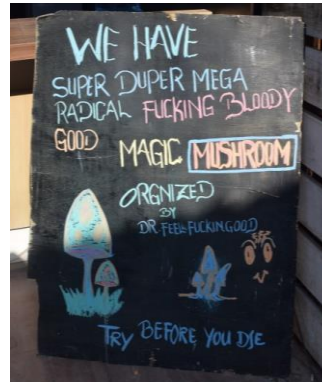 WE HAVE
SUPER DUPER MEGA
RADICAL FUCKING BLOODY
GOOD
MAGIC MUSHROOM
ORGNIZED
BY
DR FEEL FUCKING GOOD
TRY BEFORE YOU DIE